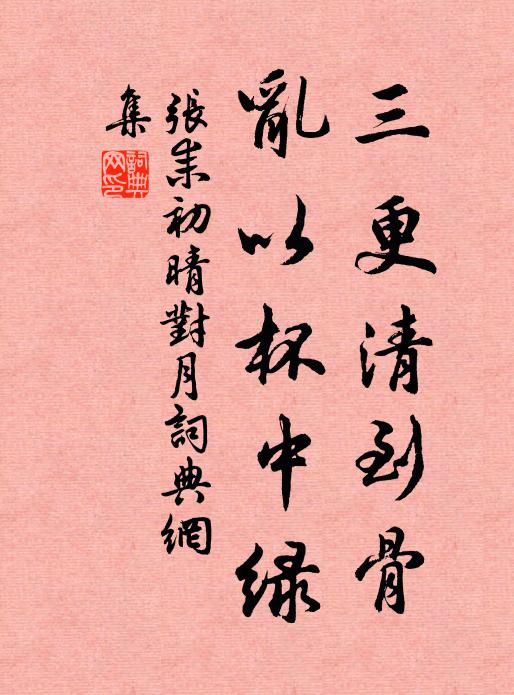 三更清到骨
亂以杯中綠
張耒初晴對月詞典網
集
詞典
網印